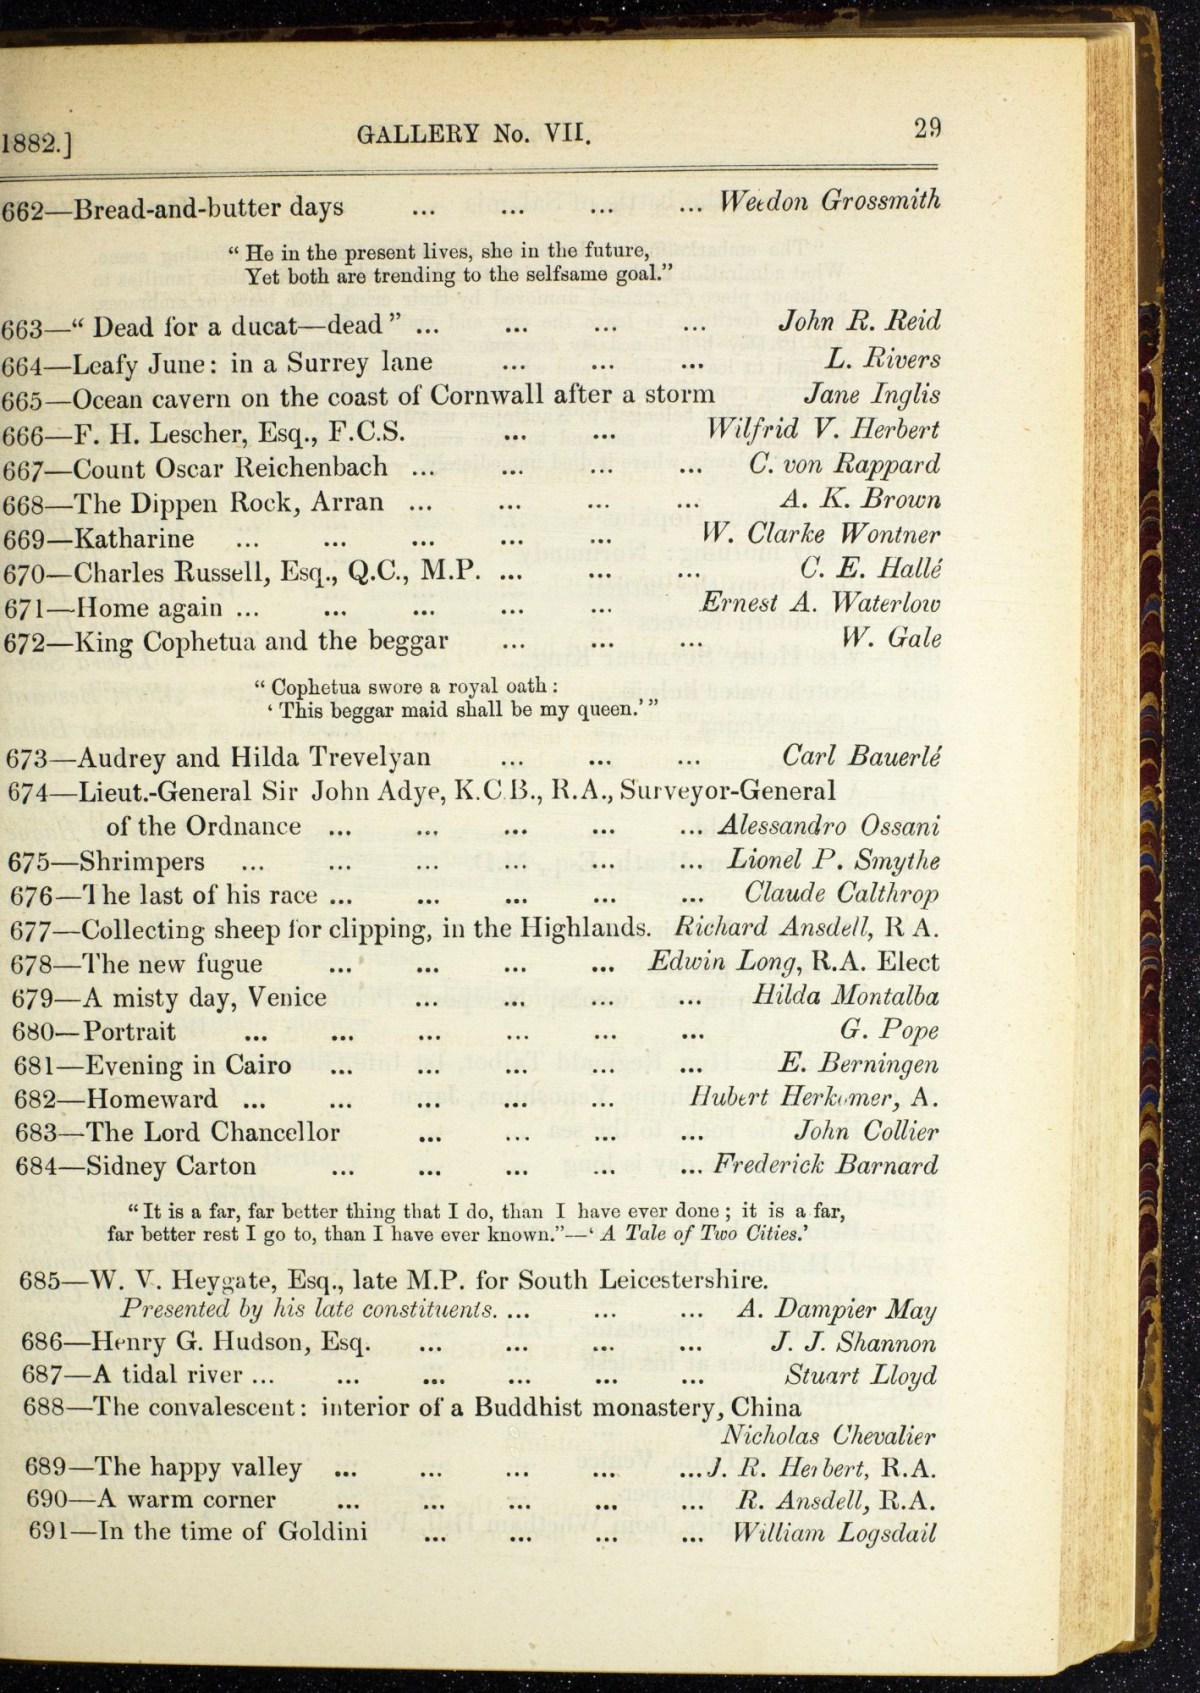 1882.] GALLERY No. VII. 29
662—Bread-and-butter days ... ... ... ... Weedon Grossmith
“ He in the present lives, she in the future,
Yet both are trending to the selfsame goal.”
663—“ Dead for a ducat—dead ” ... ... ... ... John R. Reid
664—Leafy June: in a Surrey lane ... ... ... L. Rivers
665—Ocean cavern on the coast of Cornwall after a storm Jane Inglis
666—F. H. Lescher, Esq., F.C.S. ... ... Wilfrid V. Herbert
667—Count Oscar Reichenbach ... ... ... ... C. von Rappard
668—The Dippen Rock, Arran ... ... ... ... A. K. Brown
669—Katharine ... ... ... ... ... W. Clarke Wontner
670—Charles Russell, Esq., Q.C., M.P. ... ... ... C. E. Hallé
671—Home again ... ... ... ... ... Ernest A. Waterlow
672—King Cophetua and the beggar ... ... ... W. Gale
“ Cophetua swore a royal oath :
‘ This beggar maid shall be my queen.’ ”
673—Audrey and Hilda Trevelyan ... ... ... Carl Bauerlé
674—Lieut.-General Sir John Adye, K.C.B., R.A., Surveyor-General
of the Ordnance ... ... ... ... ... Alessandro Ossani
675—Shrimpers ... ... ... ... ... ... Lionel P. Smythe
676—The last of his race ... ... ... ... ... Claude Calthrop
677—Collecting sheep for clipping, in the Highlands. Richard Ansdell, R A.
678—The new fugue ... ... ... ... Edwin Long, R.A. Elect
679—A misty day, Venice ... ... ... ... Hilda Montalba
680—Portrait ... ... ... ... ... ... G. Pope
681—Evening in Cairo ... ... ... ... ... E. Berningen
682—Homeward ... ... ... ... ... Hubert Herkomer, A.
683—The Lord Chancellor ... ... ... ... John Collier
684—Sidney Carton ... ... ... ... ... Frederick Barnard
“ It is a far, far better thing that I do, than I have ever done ; it is a far,
far better rest I go to, than I have ever known.”—‘ A Tale of Two Cities.’
685—W. V. Heygate, Esq., late M.P. for South Leicestershire.
Presented by his late constituents. ... ... ... A. Dampier May
686—Henry G. Hudson, Esq. ... ... ... ... J. J. Shannon
687—A tidal river ... ... ... ... ... ... Stuart Lloyd
688—The convalescent : interior of a Buddhist monastery, China
Nicholas Chevalier
689—The happy valley ... ... ... ... ... J. R. Herbert, R.A.
690—A warm corner ... ... ... ... ... R. Ansdell, R.A.
691—In the time of Goldini ... ... ... ... William Logsdail